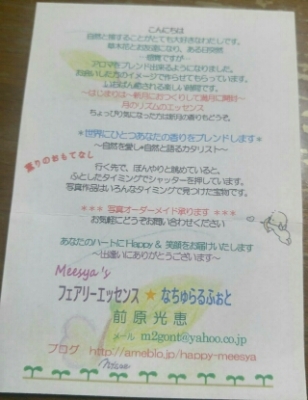 こんにちは
自然と接することがとても大好きなわたしです。
草木花とお友達になり、ある日突然
~感覚ですが~
アロマをブレンド出来るようになりました。
お会いした方のイメージで作らせてもらっています。
~はじまりは~新月におつくりして満月に開封~
月のリズムのエッセンス
ちょっぴり気になった方は新月の香りもどうぞ。
*世界にひとつあなたの香りをブレンドします*
~自然を愛し*自然と語るのタリスト~
香りのおもてなし
行く先で、ぼんやりと眺めていると。
ふとしたタイミングでシャッターを押しています。
写真作品はいろんなタイミングで見つけた宝物です。
*** 写真オーダーメイド承ります ***
お気軽にどうぞお問い合わせください
あなたのハートにHappy & 笑顔をお届けいたします
~出逢いにありがとうございます~
Meesya's
フェアリーエッセンス ★ なちゅらるふぉと
前原光恵
メール m2gont@yahoo.co.jp
ブログ http://ameblo.jp/happy-meesya